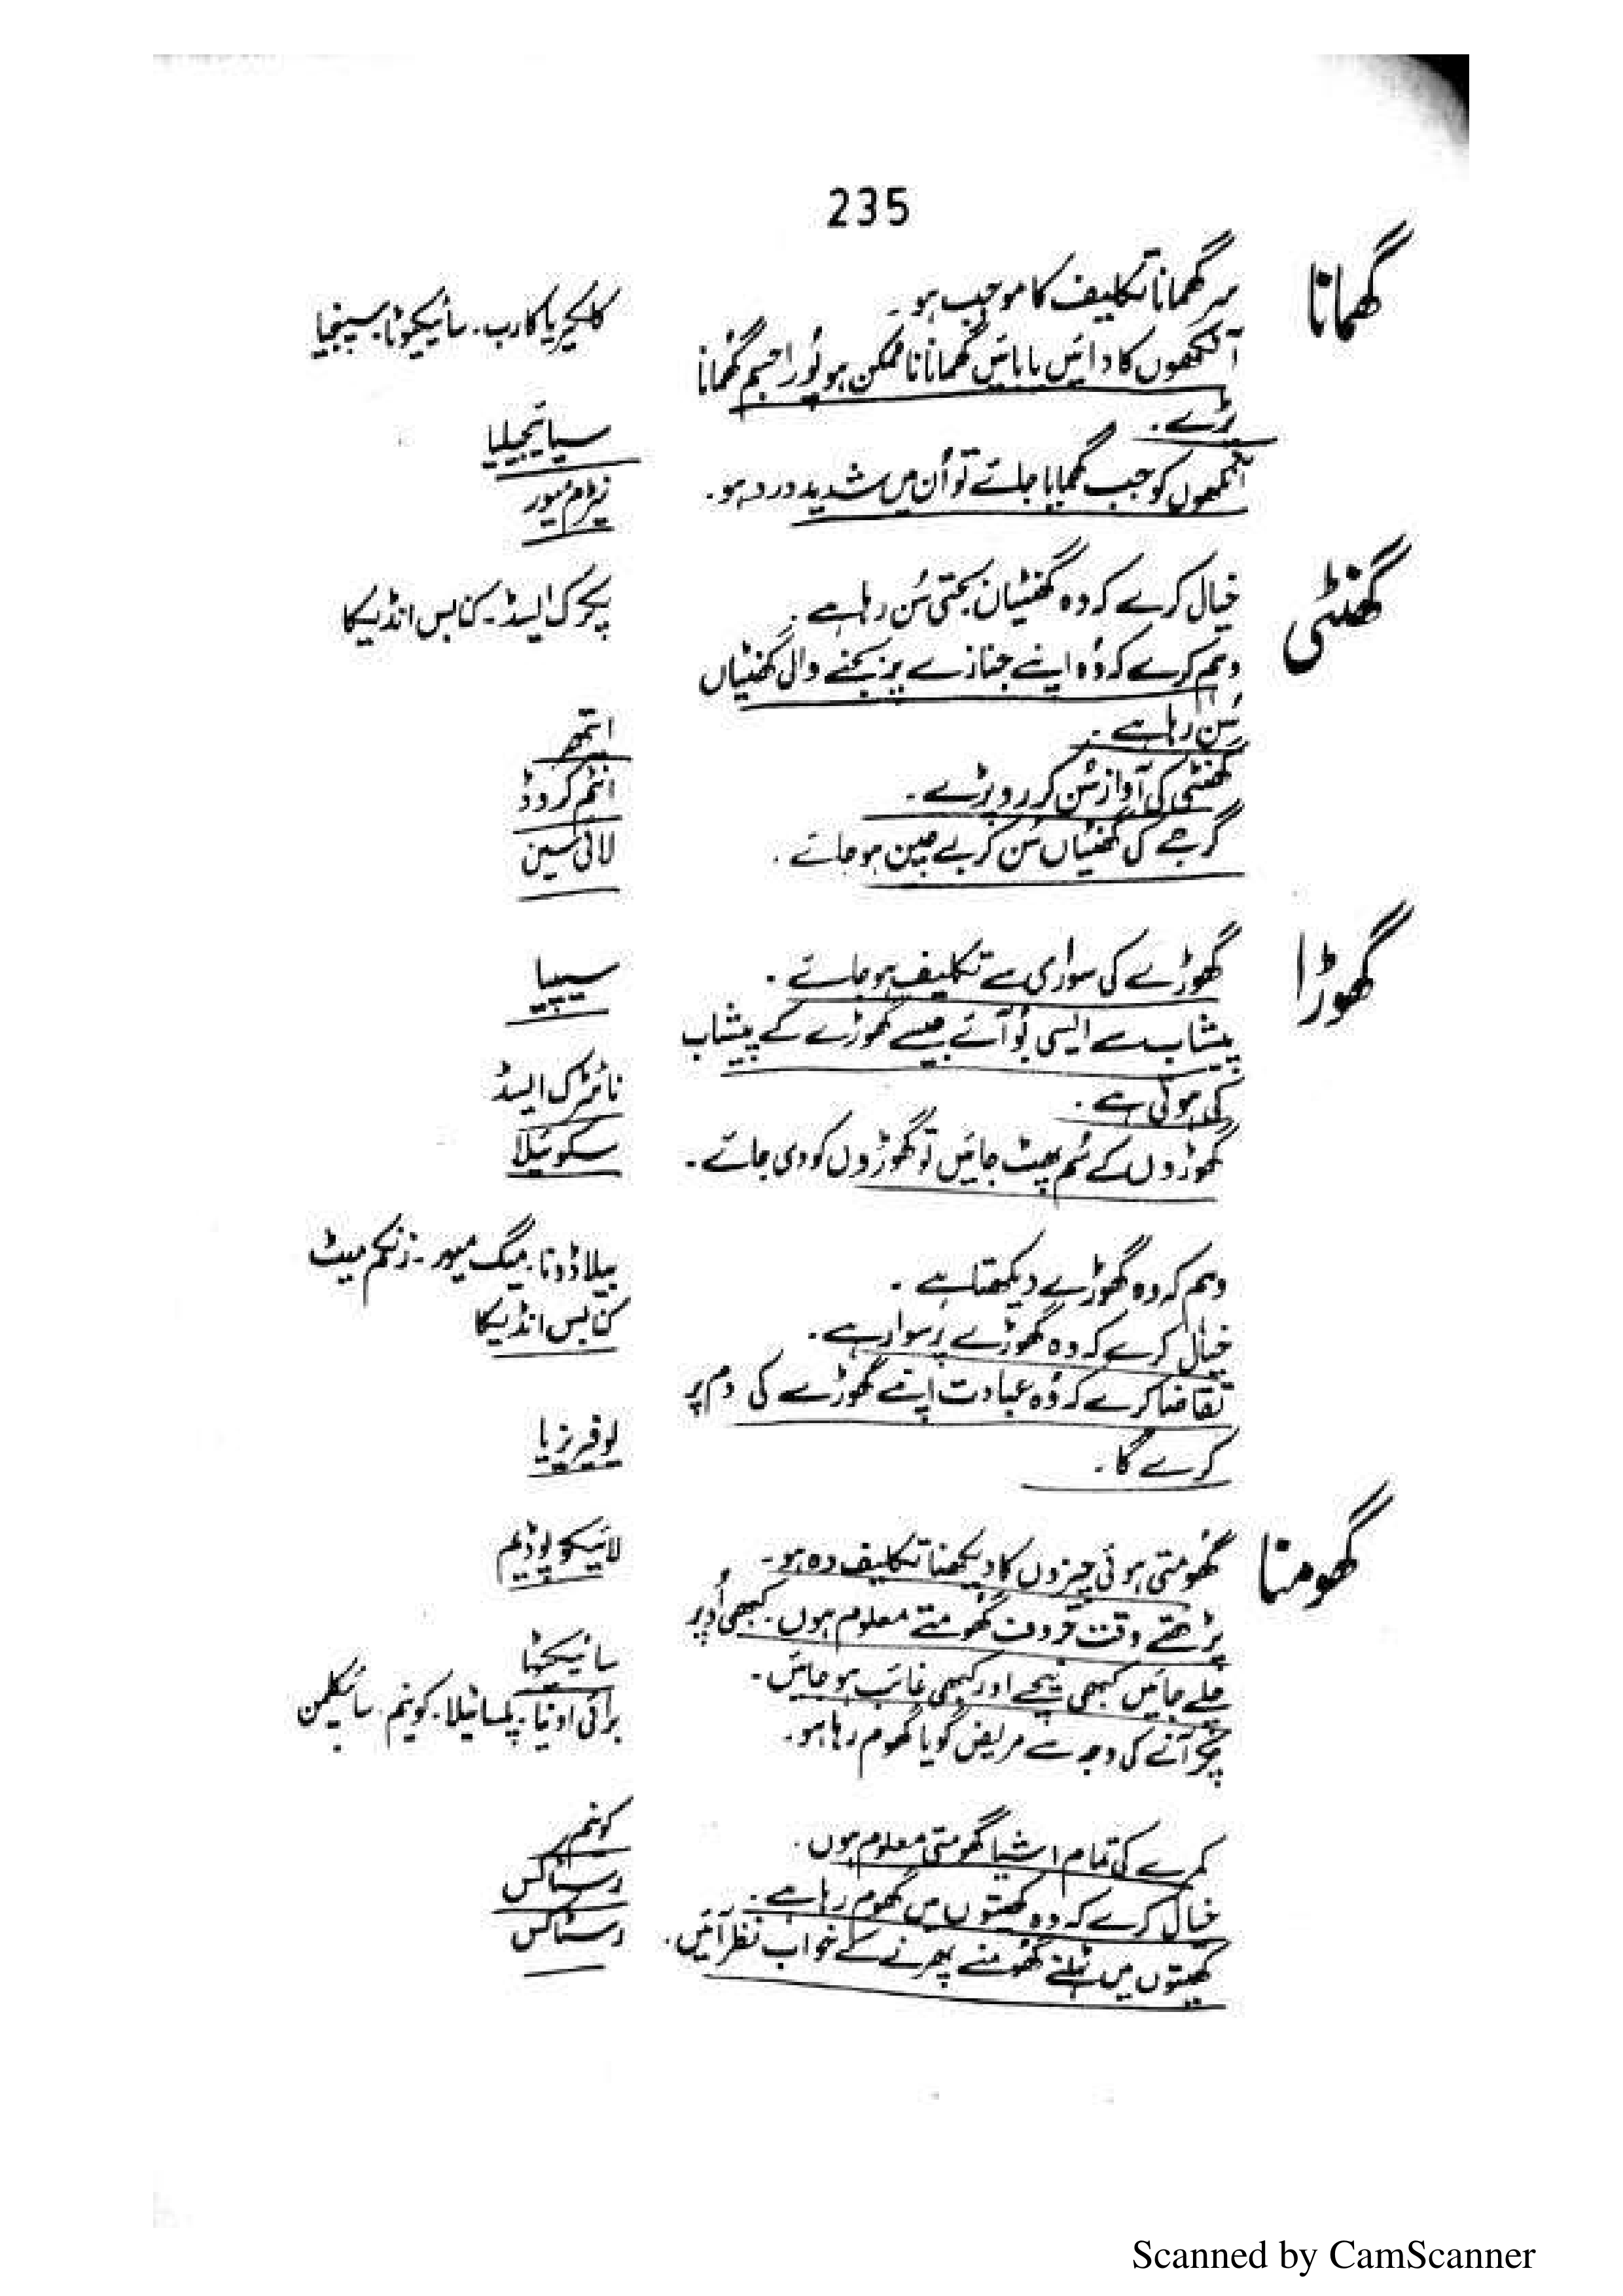 235
گھمانا
سر گھمانا تکلیف کا موجب ہو۔
کلکیریا کارب۔ سائیکوٹا۔ سپنجیا
آنکھوں کا دائیں یا بائیں گھمانا ناممکن ہو پُورا جسم گھُمانا
پڑے۔
آنکھوں کو جب گھمایا جائے تو اُن میں شدید درد ہو۔
نیٹرم میور
گھنٹی
خیال کرے کہ وہ گھنٹیاں بجتی سُن رہا ہے۔
پکرک ایسڈ۔ کنابس انڈیکا
وہم کرے کہ وُہ اپنے جنازے پر بجنے والی گھنٹیاں
سُن رہا ہے۔
ایتھر
گھنٹی کی آواز سُن کر رو پڑے۔
انٹم کروڈ
گرجے کی گھنٹیاں سُن کر بے چین ہو جائے۔
لائی سین
گھوڑا
گھوڑے کی سواری سے تکلیف ہو جائے۔
سیپیا
پیشاب سے ایسی بُو آئے جیسے گھوڑے کے پیشاب
کی ہوتی ہے۔
نائٹرک ایسڈ
گھوڑوں کے سُم پھٹ جائیں تو گھوڑوں کو دی جائے۔
سکوئیلا
وہم کہ وہ گھوڑے دیکھتا ہے۔
بیلاڈونا۔ میگ میور۔ زنکم میٹ
خیال کرے کہ وہ گھوڑے پر سوار ہے۔
کنابس انڈیکا
تقاضا کرے کہ وُہ عبادت اپنے گھوڑے کی دم پر
کرے گا۔
یوفریزیا
گھومنا
گھُومتی ہوئی چیزوں کا دیکھنا تکلیف دہ ہو۔
لائیکوپوڈیم
پڑھتے وقت حروف گھُومتے معلوم ہوں۔ کبھی اُوپر
چلے جائیں کبھی نیچے اور کبھی غائب ہو جائیں۔
چکر آنے کی وجہ سے مریض گویا گھوم رہا ہو۔
برائی اونیا۔ پلساٹیلا۔ کونیم۔ سائیکلمن
کمرے کی تمام اشیا گھومتی معلوم ہوں۔
کونیم
خیال کرے کہ وہ کھیتوں میں گھوم رہا ہے۔
رسٹاکس
کھیتوں میں ٹہلنے گھُومنے پھرنے کے خواب نظر آئیں۔
رسٹاکس
Scanned by CamScanner